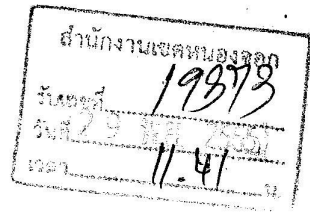 สำนักงานเขตหนองจอก
รับเลขที่ 19373
วันที่ 29
เวลา 11.41 น.